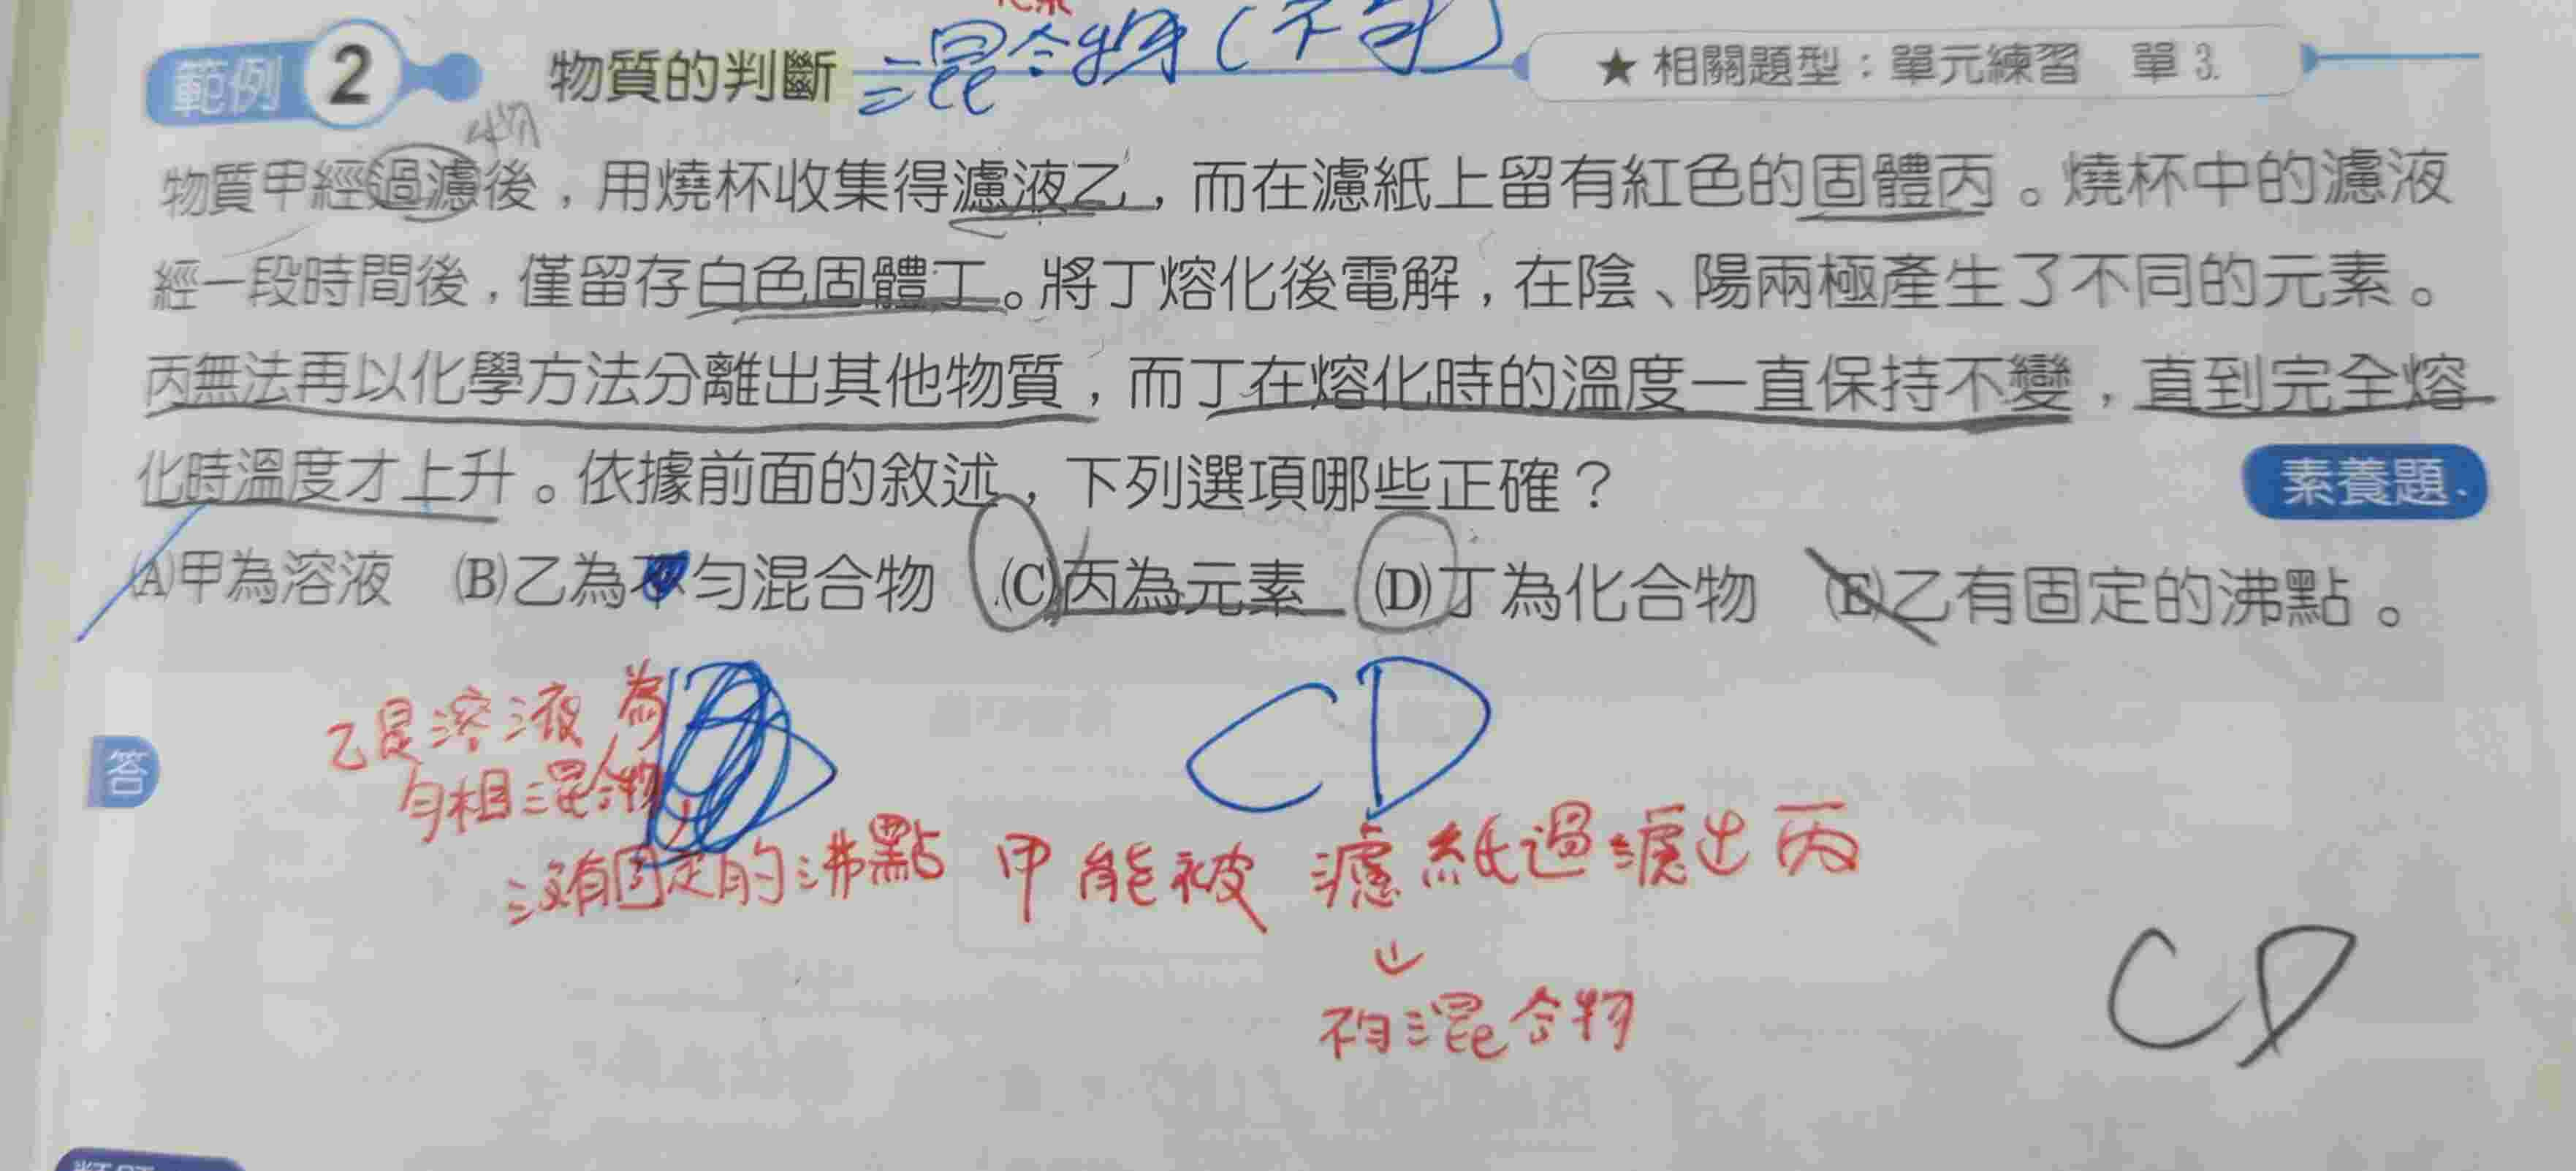 範例 2 物質的判斷 混合物(不勻) ★相關題型:單元練習 單 3.
物質甲經過濾後,用燒杯收集得濾液乙,而在濾紙上留有紅色的固體丙。燒杯中的濾液
經一段時間後,僅留存白色固體丁。將丁熔化後電解,在陰、陽兩極產生了不同的元素。
丙無法再以化學方法分離出其他物質,而丁在熔化時的溫度一直保持不變,直到完全熔
化時溫度才上升。依據前面的敘述,下列選項哪些正確?
素養題
(A)甲為溶液 (B)乙為不勻混合物 (C)丙為元素 (D)丁為化合物 (E)乙有固定的沸點。
CD
乙是溶液為
勻相混合物
沒有固定的沸點
答
甲能被濾紙過濾出丙
不勻混合物
CD